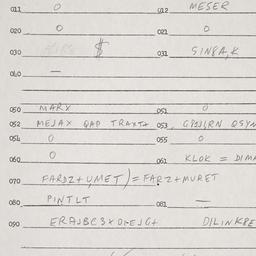 011 0 012 MESER
020 0 021 0
030 $ 031 SINGA,K
040 —
050 MARX 051 0
052 MEJAX QAD TRAXTA 053
054 0 055 0
060 0 061 KLOK = DIMA
070 FARDZ+U,MET) = FARZ+MURET
080 PINTLT 081 —
090 DILINKPE